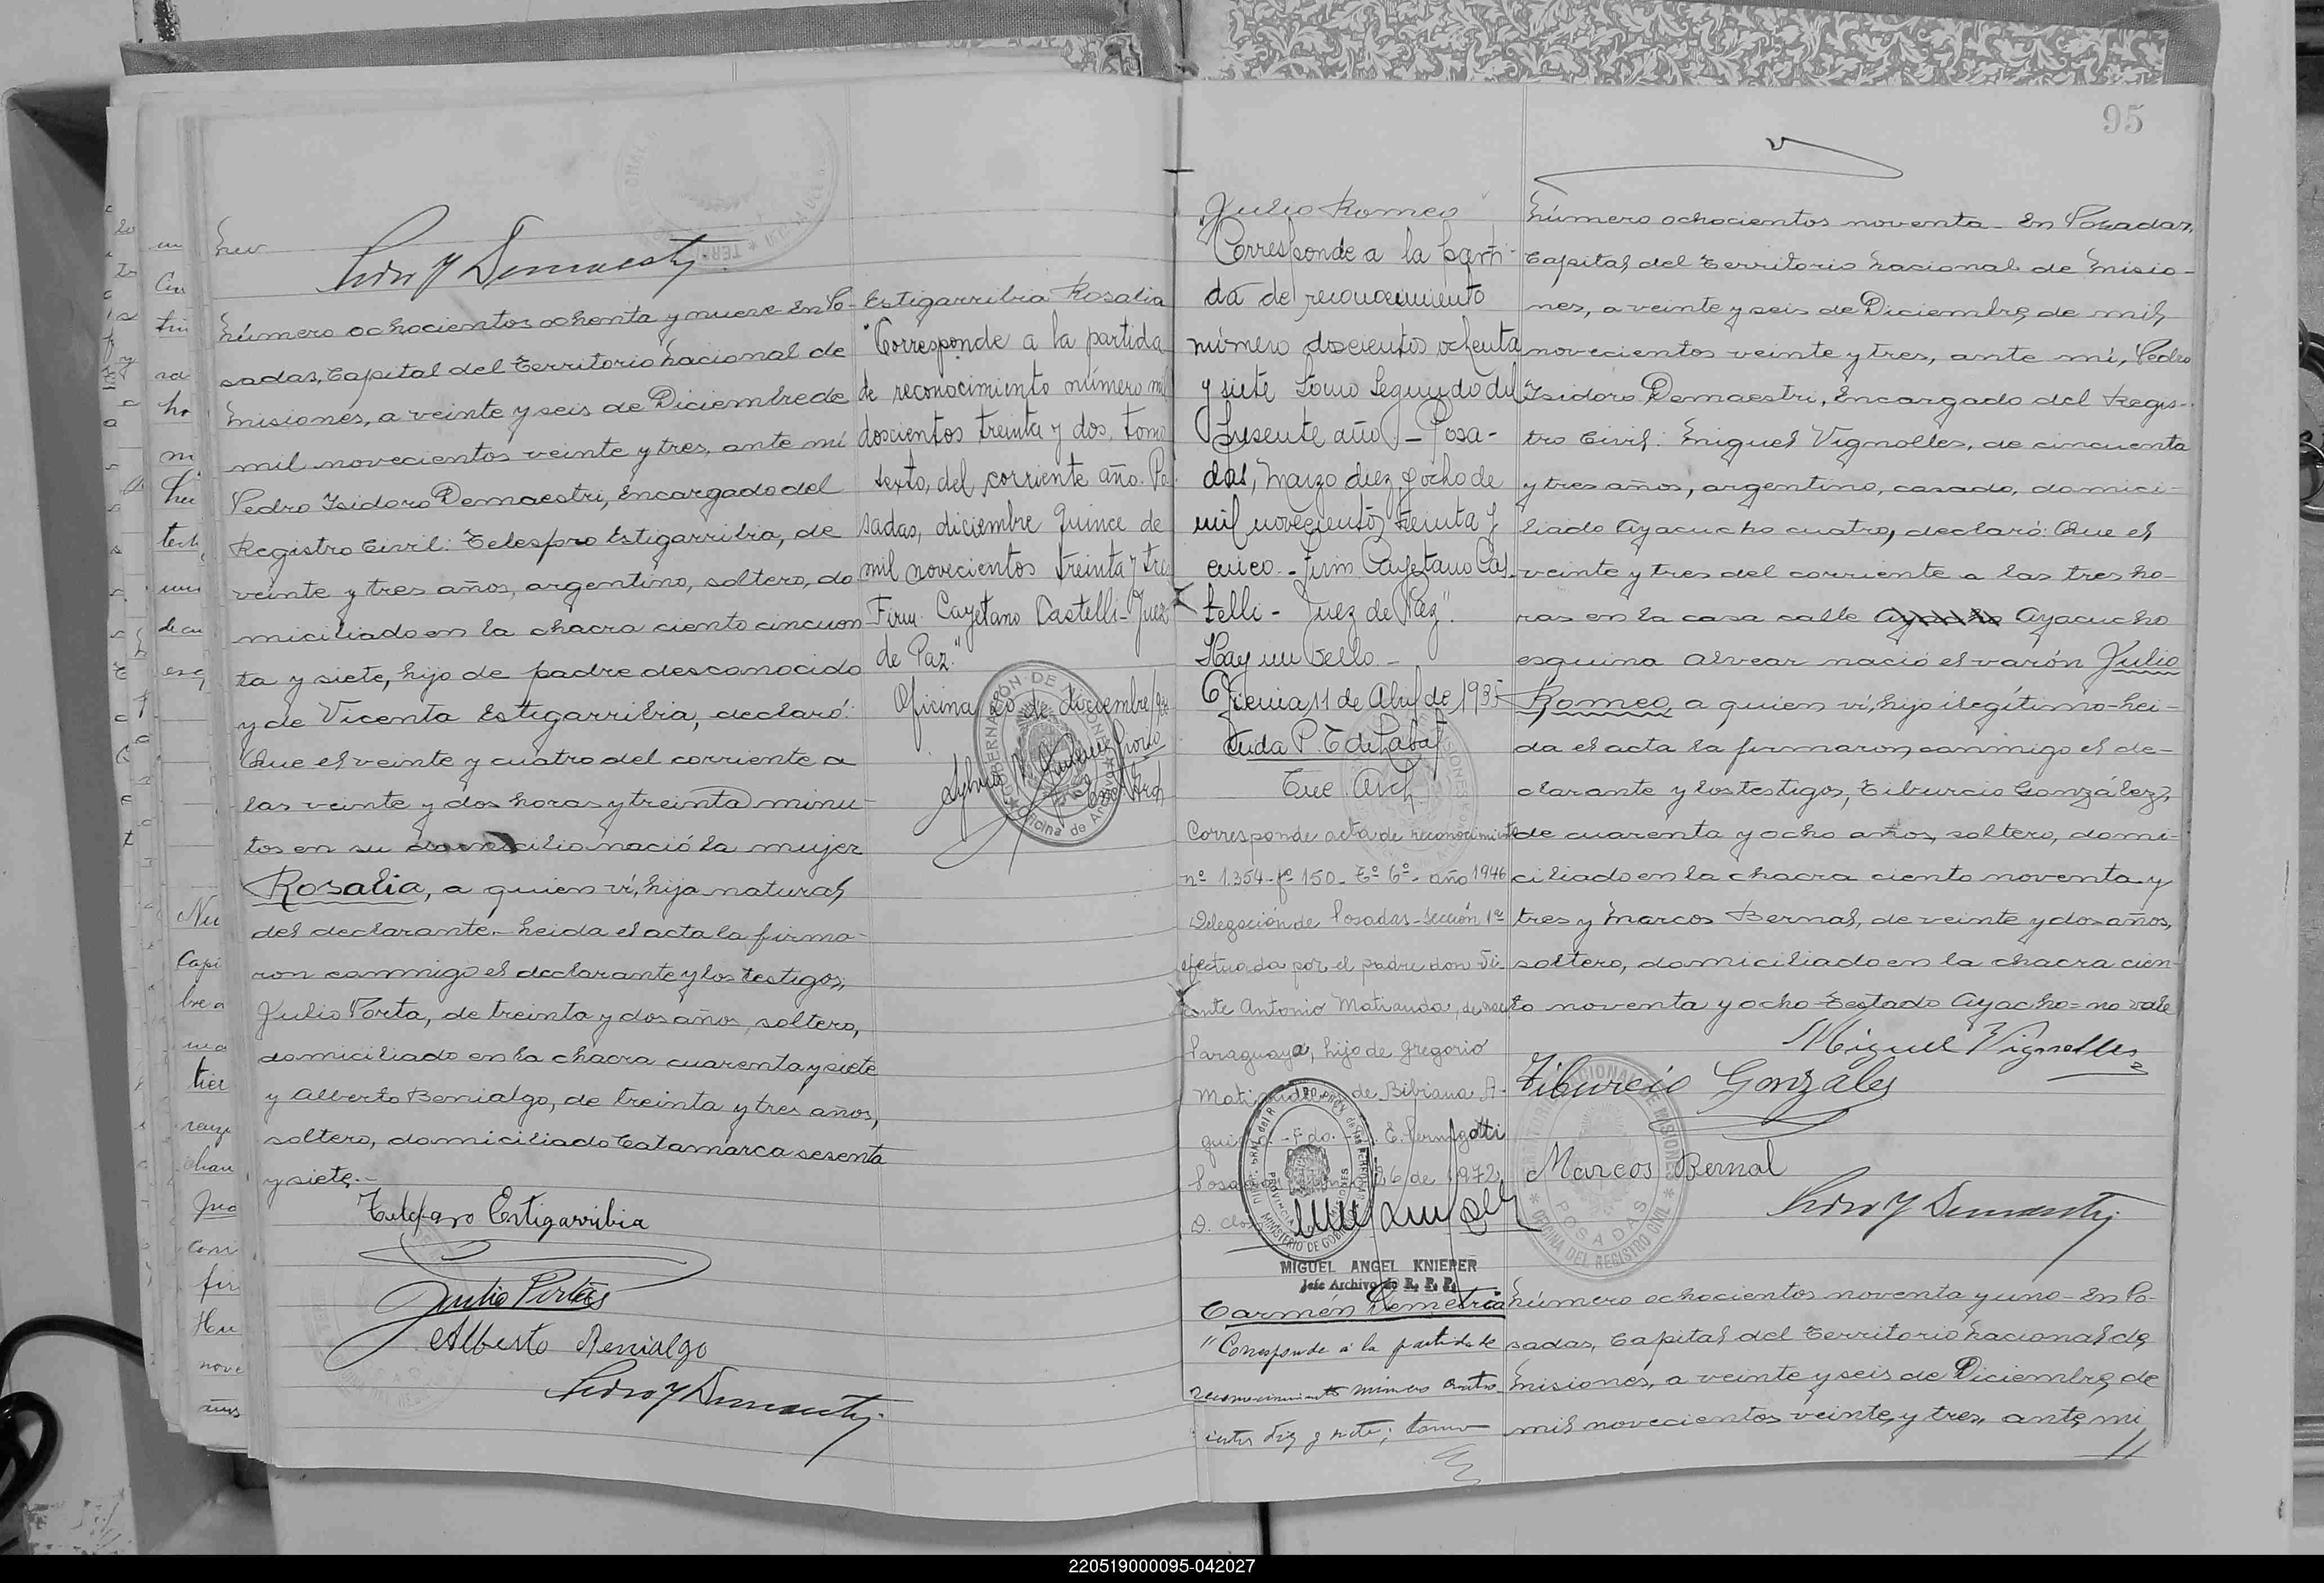 Pedro Y Demaestri
Número ochocientos ochenta y nueve- En Po-
sadas, Capital del Territorio Nacional de
Misiones, a veinte y seis de Diciembre de
mil novecientos veinte y tres, ante mí
Pedro Isidoro Demaestri, Encargado del
Registro Civil: Telesforo Estigarribia, de
veinte y tres años, argentino, soltero, do
miciliado en la chacra ciento cincuen
ta y siete, hijo de padre desconocido
y de Vicenta Estigarribia, declaró:
Que el veinte y cuatro del corriente a
las veinte y dos horas y treinta minu-
tos en su domicilio nació la mujer
Rosalia, a quien ví, hija natural
del declarante.- Leida el acta la firma-
ron conmigo el declarante y los testigos,
Julio Porta, de treinta y dos años, soltero,
domiciliado en la chacra cuarenta y siete
y Alberto Benialgo, de treinta y tres años,
soltero, domiciliado Catamarca sesenta
y siete.-
Estigarribia
Julio
Alberto Benialgo
Pedro Y Demaestri
Estigarribia Rosalia
"Corresponde a la partida
de reconocimiento número mil
doscientos treinta y dos, tomo
sexto, del corriente año. Po-
sadas, diciembre quince de
mil novecientos treinta y tres
Firm. Cayetano Castelli- Juez
de Paz."
Oficina 20 de diciembre
95
Julio Romeo
"Corresponde a la parti-
da de reconocimiento
número doscientos ochenta
y siete tomo Segundo del
Presente año.- Posa-
das, Marzo diez y ocho de
mil novecientos treinta y
cinco.- Firm. Cayetano Cas-
telli - Juez de Paz".
Hay un sello.-
11 de Abril de 1935
Corresponde acta de reconocimiento
nº 1.354- fº 150- Tº 6º- año 1946
Delegación de Posadas- Sección 1ª
efectuada por el padre don Vi-
cente Antonio Matiauda, de nac.
Paraguaya, hijo de Gregorio
de Bibiana A-
26 de 1972
MIGUEL ANGEL KNIEPER
Jefe Archivo de R. P. P.
Carmen Demetria
"Corresponde a la partida de
reconocimiento número cuatro
cientos diez y siete; tomo
Número ochocientos noventa- En Posadas,
Capital del Territorio Nacional de Misio-
nes, a veinte y seis de Diciembre de mil
novecientos veinte y tres, ante mí, Pedro
Isidoro Demaestri, Encargado del Regis-
tro Civil: Miguel Vignolles, de cincuenta
y tres años, argentino, casado, domici-
liado Ayacucho cuatro, declaró: Que el
veinte y tres del corriente a las tres ho-
ras en la casa calle Ayacho Ayacucho
esquina Alvear nació el varón Julio
Romeo, a quien ví, hijo ilegítimo- Lei-
da el acta la firmaron conmigo el de-
clarante y los testigos, Tiburcio González,
de cuarenta y ocho años, soltero, domi-
ciliado en la chacra ciento noventa y
tres y Marcos Bernal, de veinte y dos años,
soltero, domiciliado en la chacra cien-
to noventa y ocho- Testado Ayacho= no vale
Miguel Vignolles
Tiburcio Gonzales
Marcos Bernal
Pedro Y Demaestri
Número ochocientos noventa y uno- En Po-
sadas, Capital del Territorio Nacional de
Misiones, a veinte y seis de Diciembre de
mil novecientos veinte y tres, ante mí
220519000095-042027